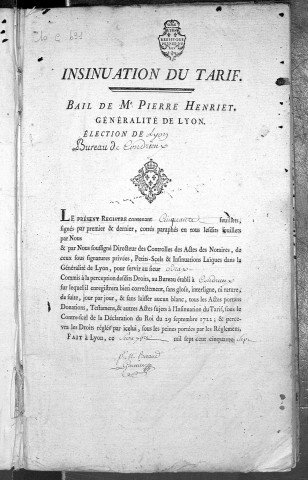 INSINUATION DU TARIF.
BAIL DE Me PIERRE HENRIET,
GÉNÉRALITÉ DE LYON.
ÉLECTION DE Lyon
Bureau de Condrieu
LE PRÉSENT REGISTRE contenant Cinquante feuillets,
signés par premier & dernier, cottés paraphés en tous lesdits feuillets
par Nous
& par Nous soussigné Directeur des Controlles des Actes des Notaires, de
ceux sous signatures privées, Petits-Scels & Insinuations Laïques dans la
Généralité de Lyon, pour servir au sieur
Commis à la perception desdits Droits, au Bureau établi à Condrieu
sur lequel il enregistrera bien correctement, sans glose, interligne, ni rature,
de suite, jour par jour, & sans laisser aucun blanc, tous les Actes portans
Donations, Testamens, & autres Actes sujets à l'Insinuation du Tarif, sous le
Contre-scel de la Déclaration du Roi du 29 septembre 1722; & percevra
les Droits réglés par icelui, sous les peines portées par les Réglemens.
FAIT à Lyon, ce mil sept cent cinquante